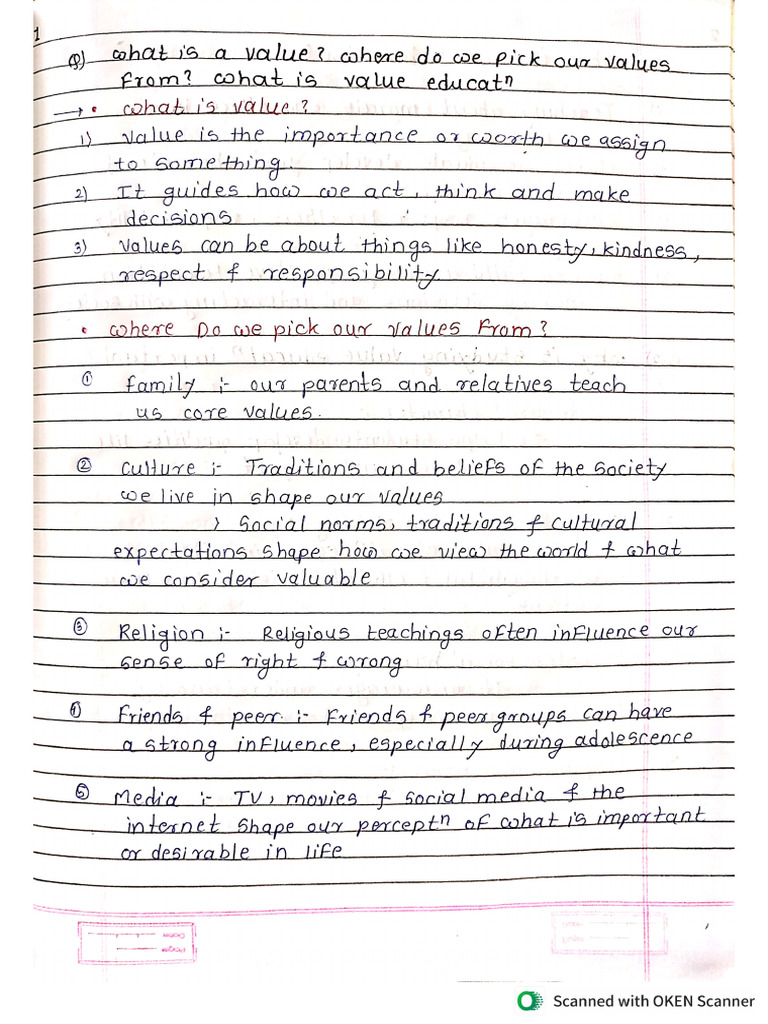 1
Q) What is a value? Where do we pick our values
from? What is value educatⁿ
→ • What is value?
1) Value is the importance or worth we assign
to something.
2) It guides how we act, think and make
decisions
3) Values can be about things like honesty, kindness,
respect & responsibility.
• Where Do we pick our values from?
① family :- our parents and relatives teach
us core values.
② Culture :- Traditions and beliefs of the society
we live in shape our values
> Social norms, traditions & cultural
expectations shape how we view the world & what
we consider valuable
③ Religion :- Religious teachings often influence our
sense of right & wrong
④ Friends & peer :- Friends & peer groups can have
a strong influence, especially during adolescence
⑤ Media :- TV, movies & social media & the
internet shape our perceptⁿ of what is important
or desirable in life
Scanned with OKEN Scanner